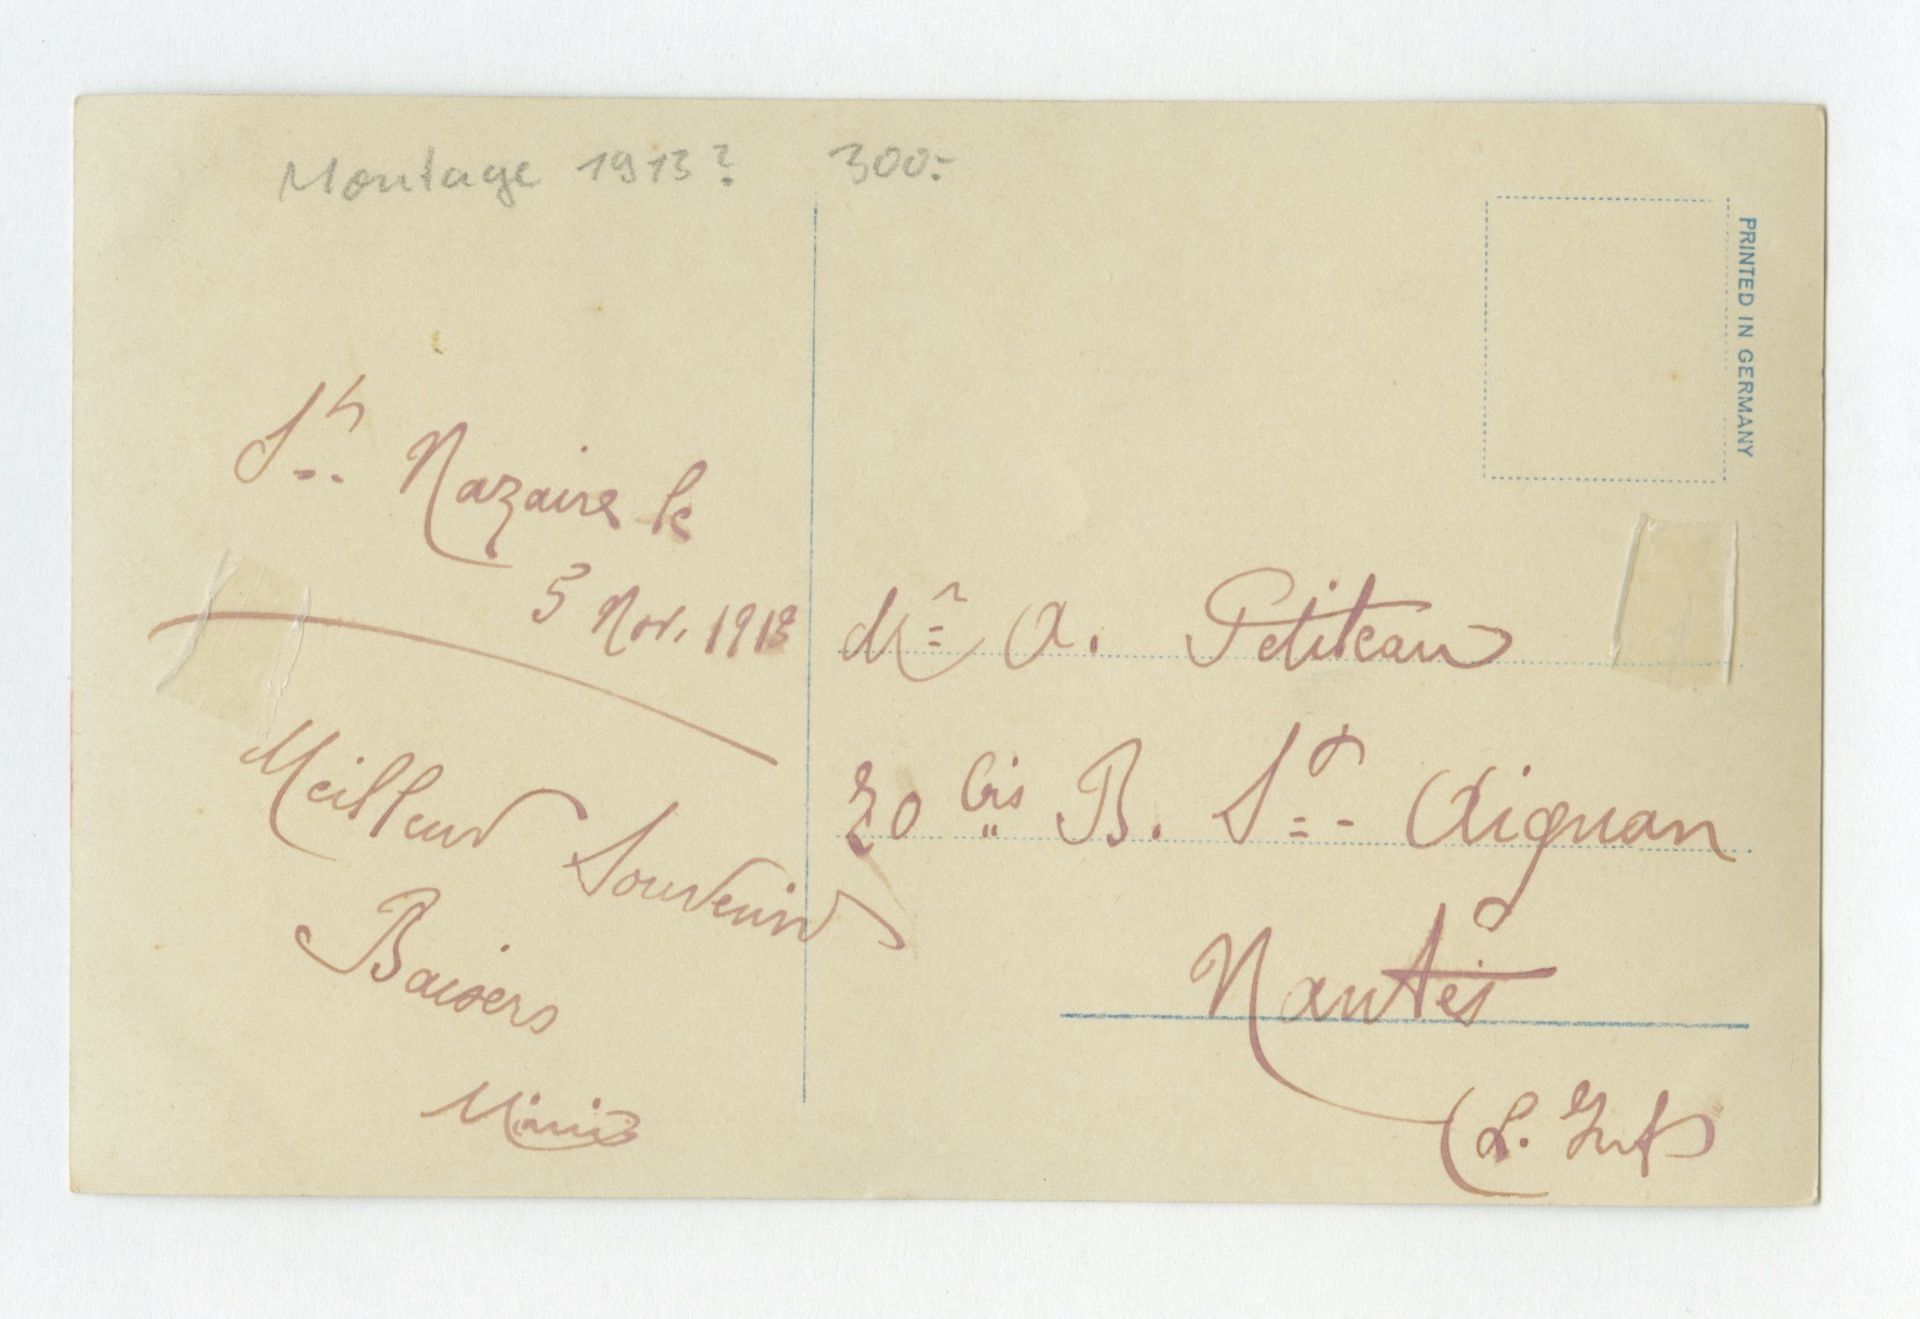 Montage 1913? 300.-
PRINTED IN GERMANY
St Nazaire le
5 Nov. 1913
Meilleur Souvenir
Baisers
Mimi
Mr A. Petiteau
20 bis B. St Aignan
Nantes
(L. Infre)